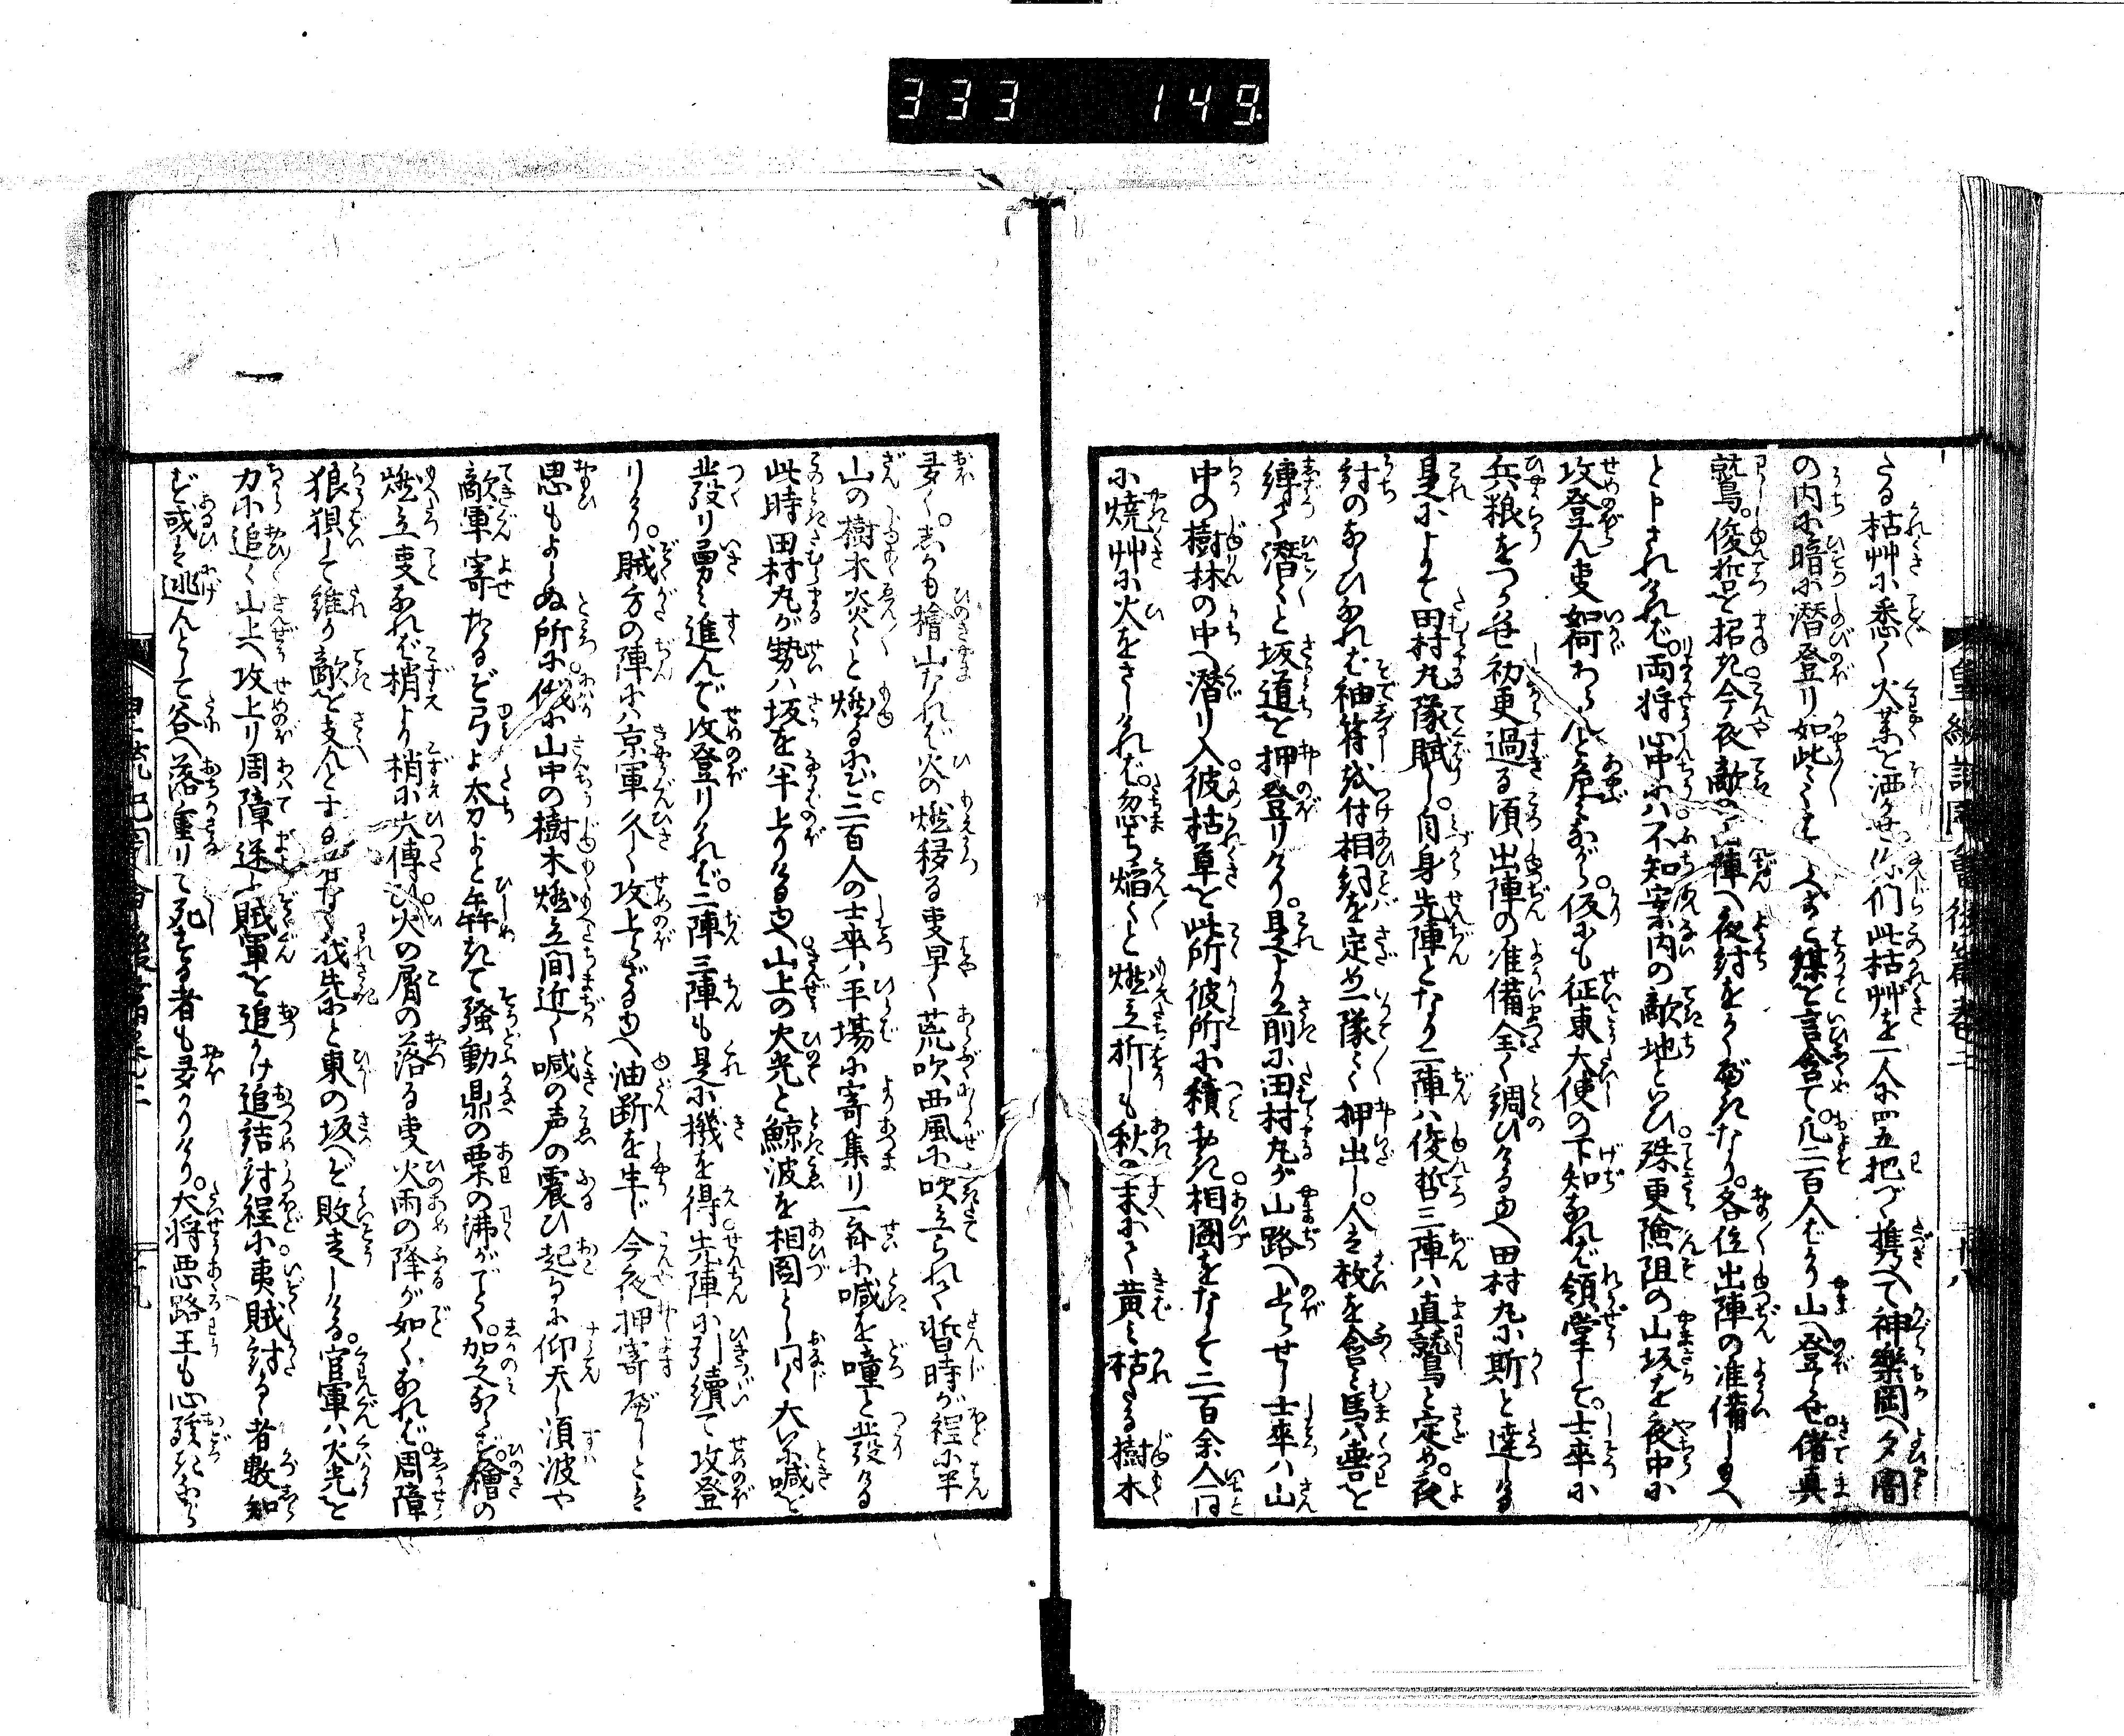 333 149
たる枯艸に悉く火薬を洒せ你們此枯艸を一人に四五把づゝ携へて神樂岡へ夕闇
の内に暗に潜登り如此〳〵せよと謀を言含て。凡二百人ばかり山へ登らせ。偖真
鷲。俊哲を招き今夜敵の山陣へ夜討をかくべきなり。各位出陣の准備したまへ
と申されければ。両将心中には不知案内の敵地といひ。殊更險阻の山坂を夜中に
攻登ん事如何あらんと危みながら。仮にも征東大使の下知なれば領掌して。士卒に
兵粮をつかはせ初更過る頃出陣の准備全く調ひけるゆへ田村丸に斯と達しける
是によつて田村丸隊賦し。自身先陣となり二陣ハ俊哲三陣ハ真鷲と定め。夜
討のならひなれば袖符を付相詞を定め一隊〳〵押出し。人ハ枚を含み馬ハ轡を
縛て潜々と坂道を押登りけり。是より前に田村丸が山路へ上らせし士卒ハ山
中の樹林の中へ潜り入。彼枯草を此所彼所に積重ね。相圖をなして二百余人同
に焼艸に火をさしければ。忽ち焔〳〵と燃立折しも秋の末にて黄み枯たる樹木
多く。しかも檜山なれば火の燃移る事早く荒吹西風に吹立られて暫時が程に半
山の樹木炎々と燃るにぞ。二百人の士卒ハ平場に寄集り一斉に喊を噇と発ける
此時田村丸が勢ハ坂を半上りけるゆへ。山上の火光と鯨波を相圖とし同く大に喊を
発り勇み進んで攻登りければ。二陣三陣も是に機を得。先陣に引續て攻登
りけり。賊方の陣にハ京軍久しく攻上らざるゆへ油断を生じ今夜押寄べしとハ
思もよらぬ所に。俄に山中の樹木燃立間近く喊の声の震ひ起るに仰天し須波や
敵軍寄たるぞ弓よ太刀よと犇めきて騒動鼎の粟の沸がごとく。加之ならず。檜の
燃立事なれば梢より梢に火傳ひ。火の屑の落る事火雨の降が如くなれば。周障
狼狽て誰か敵を支んとする者なく。我先にと東の坂へぞ敗走しける。官軍ハ火光を
力に追々山上へ攻上り周障迷ふ賊軍を追かけ追結討程に。夷賊討るゝ者數知
ず或ハ逃んとして谷へ落重りて死する者も多かりけり。大将悪路王も心驍きながら